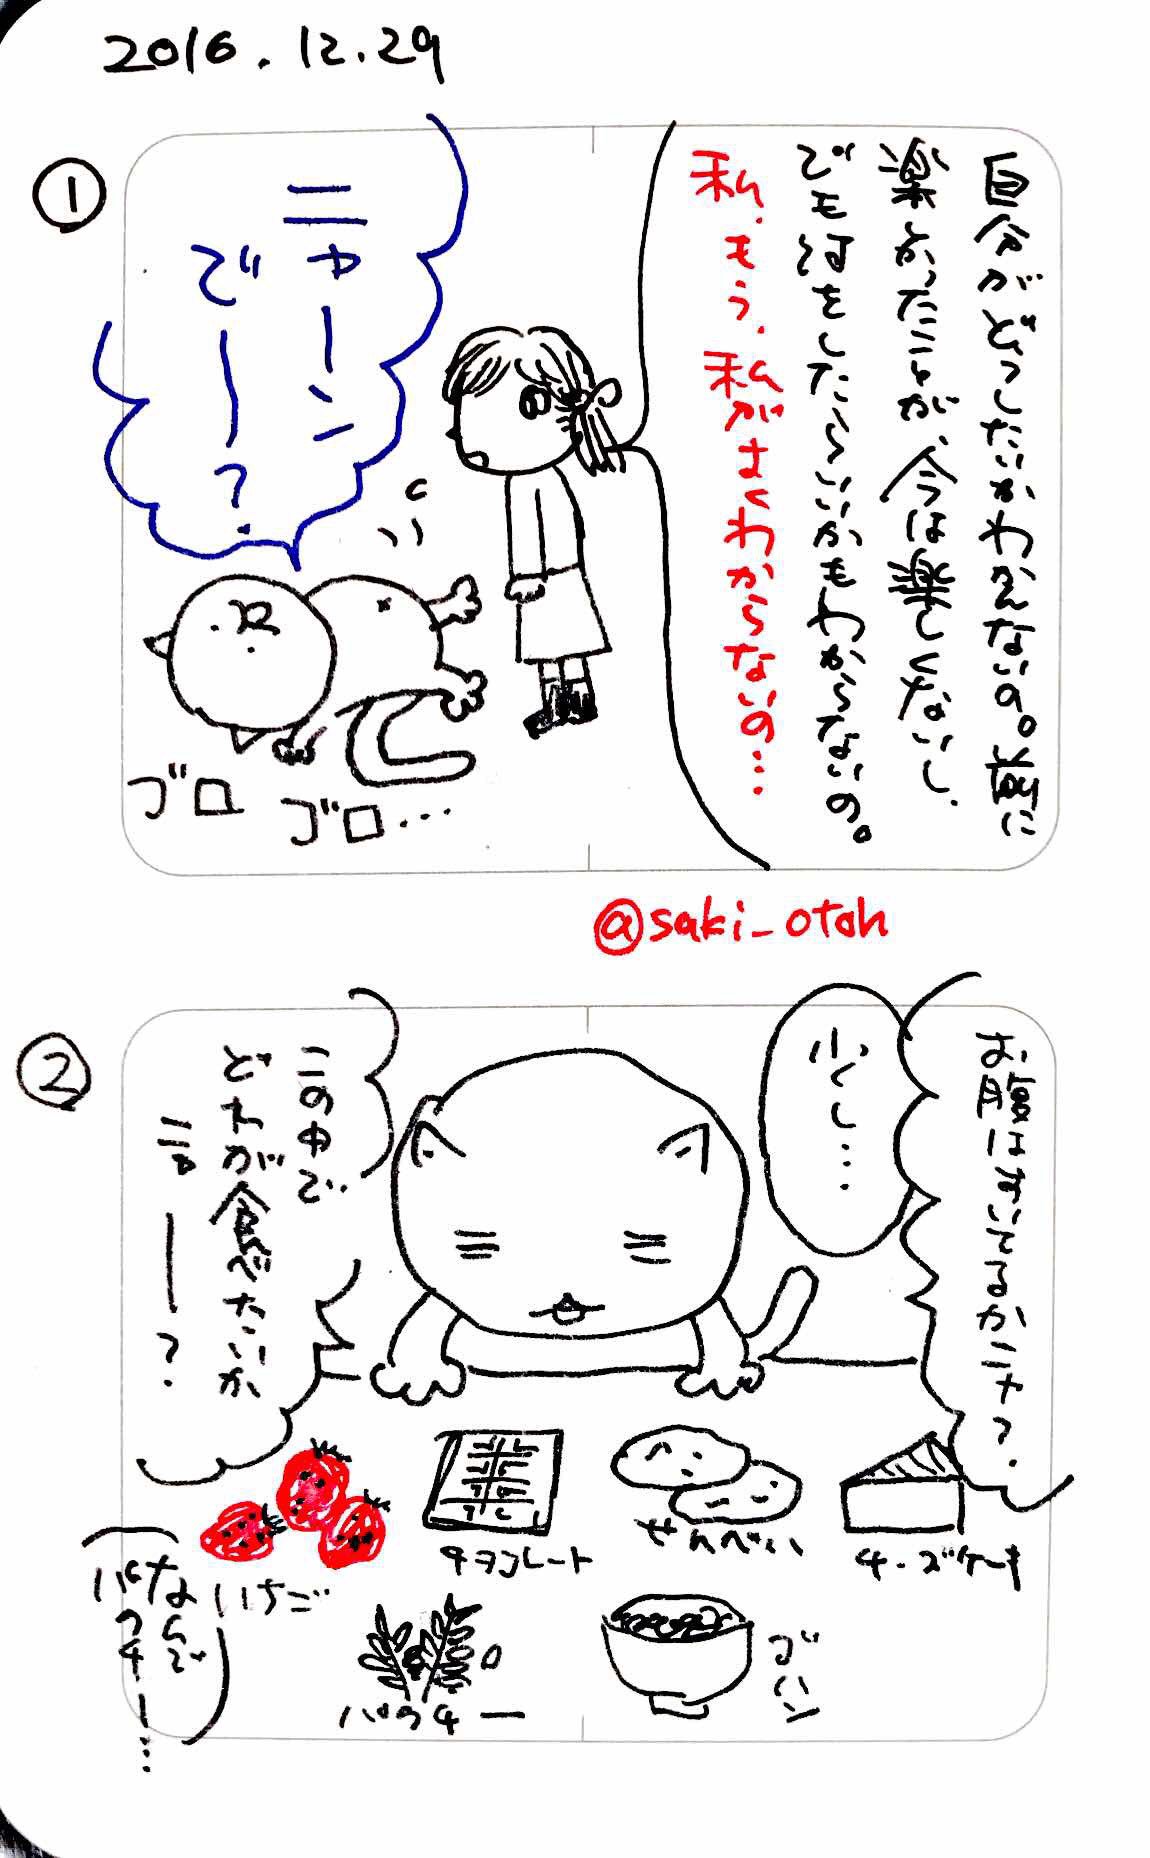 2016.12.29
①
自分がどうしたいかわかんないの。前に
楽しかったことが、今は楽しくないし、
でも何をしたらいいかもわからないの。
私、もう、私がよくわからないの…
ニャーン
でー?
ゴロ
ゴロ…
@saki_otoh
②
お腹はすいてるかニャ?
少し…
この中で
どれが食べたいか
ニャー?
チーズケーキ
せんべい
チョコレート
いちご
ゴハン
パクチー
なんで
パクチー…